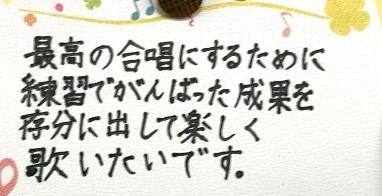 最高の合唱にするために
練習でがんばった成果を
存分に出して楽しく
歌いたいです。